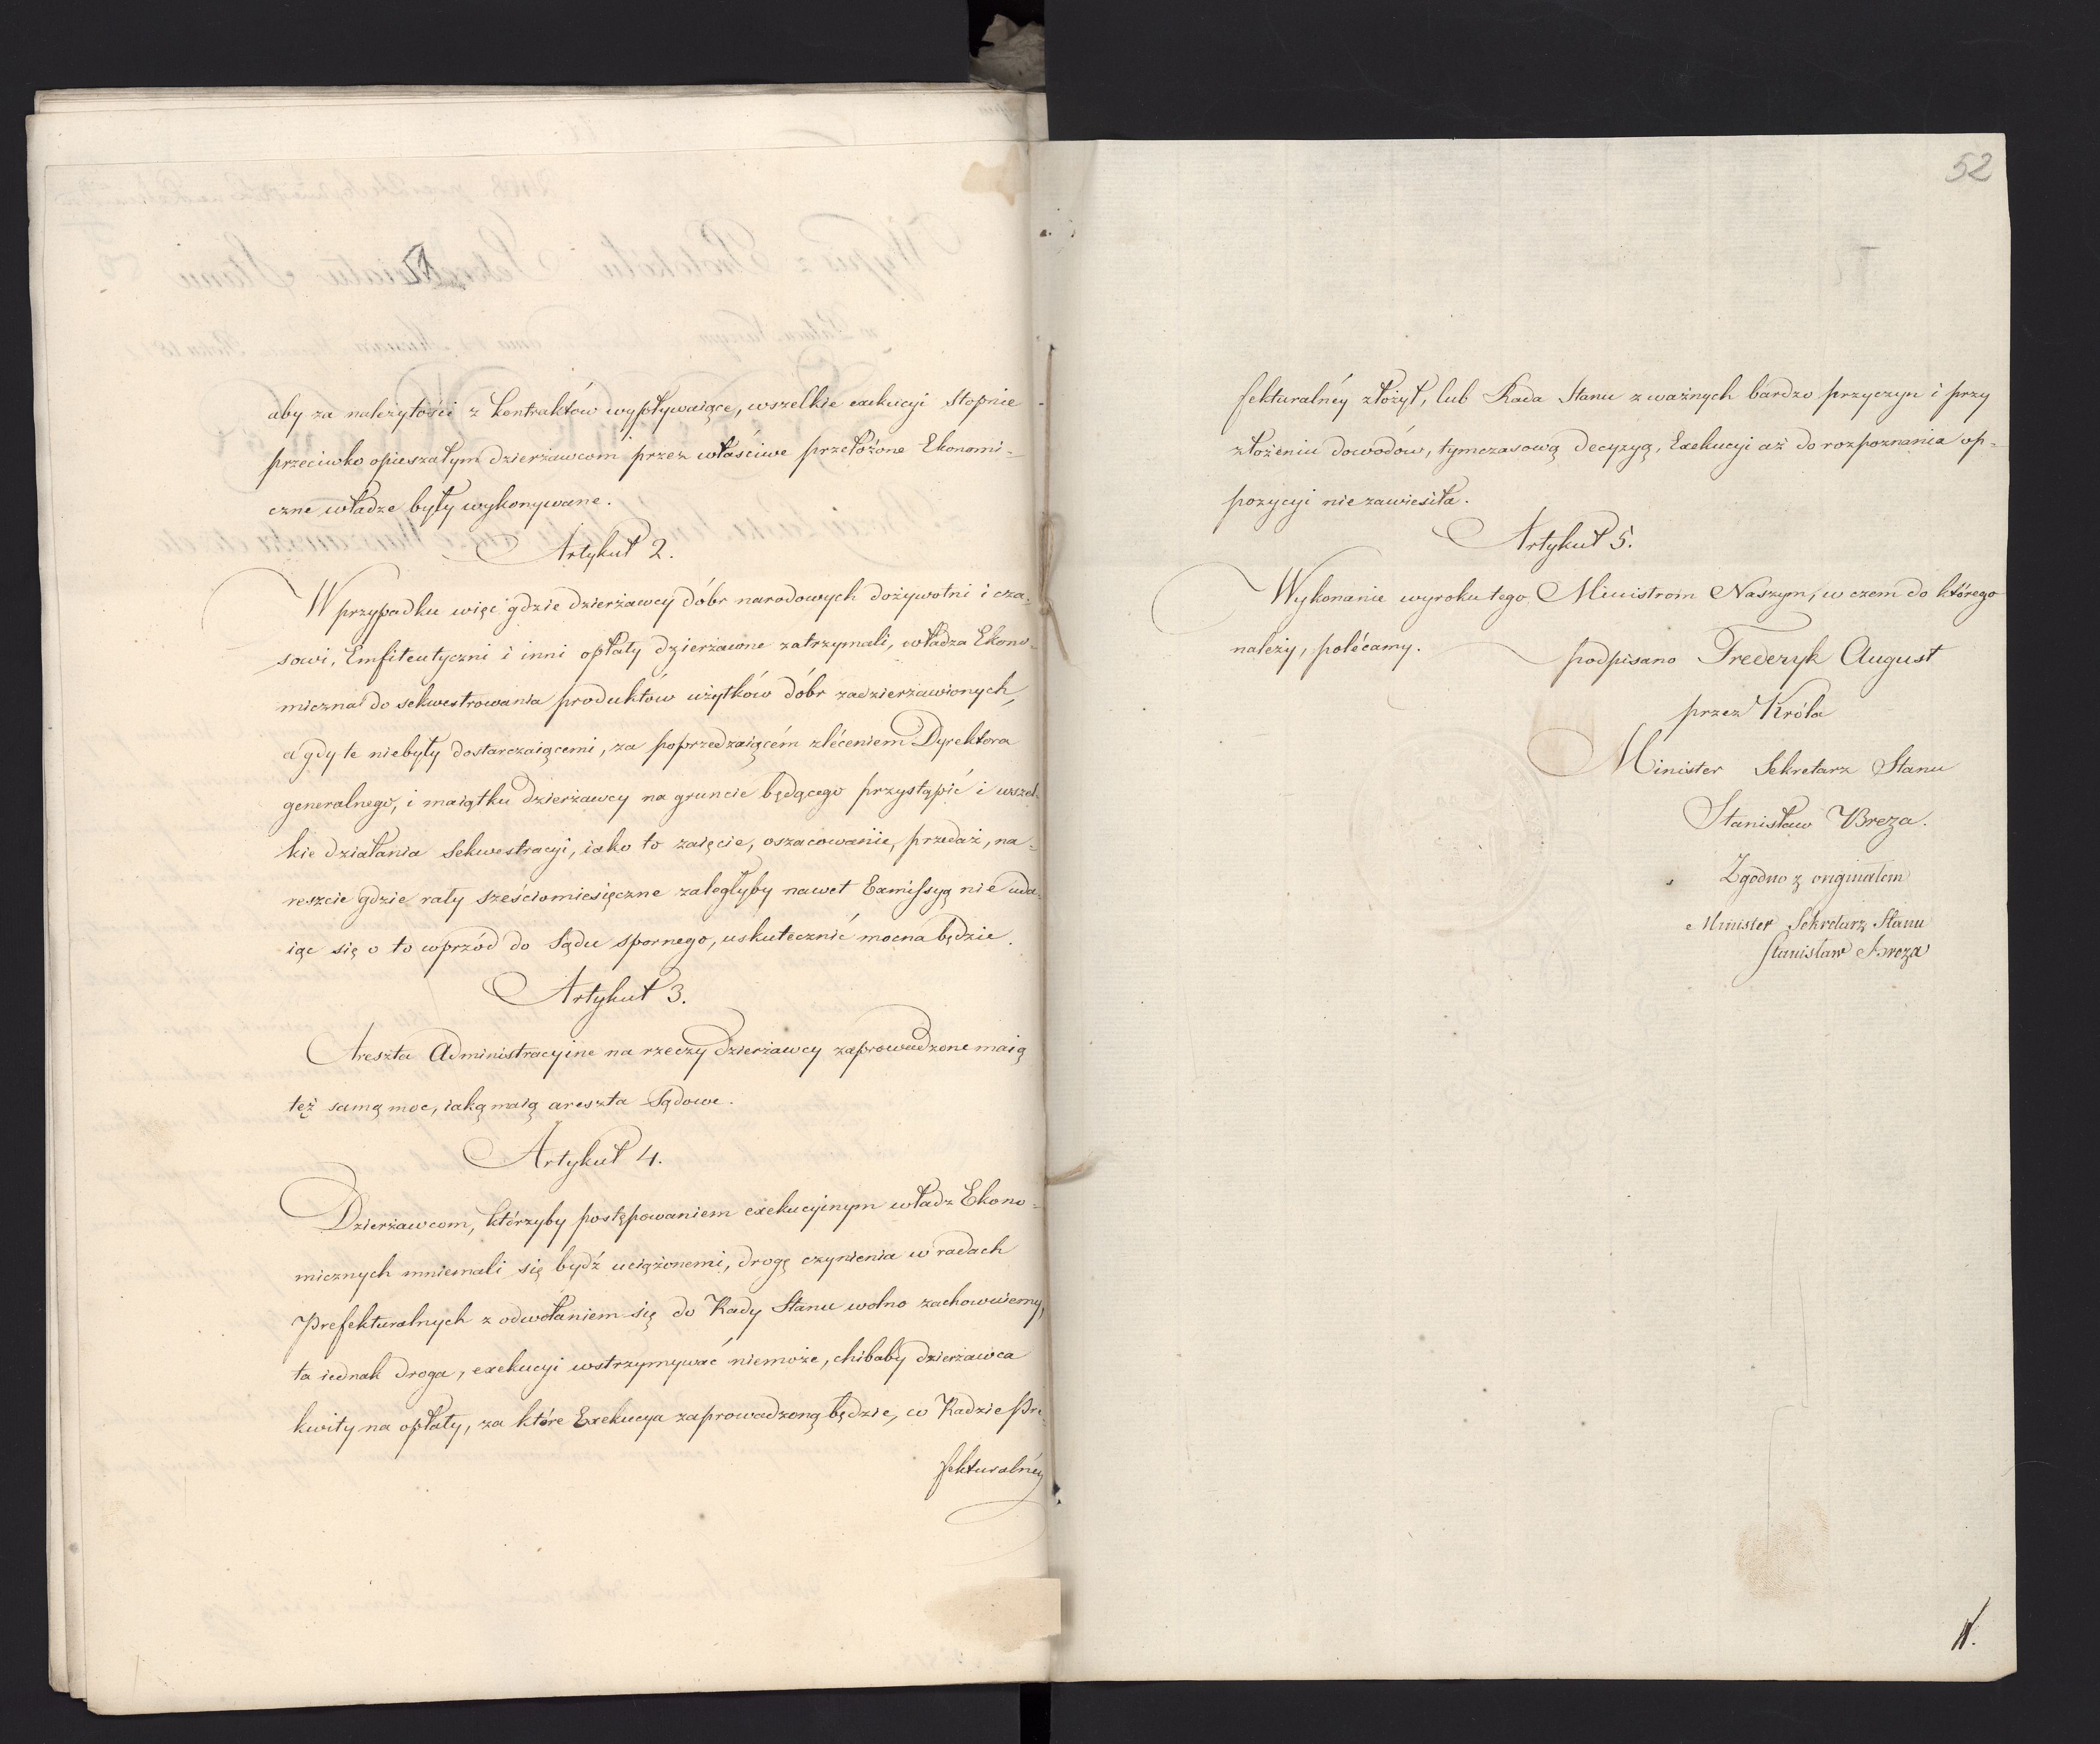 aby za należytości z kontraktów wypływaiące, wszelkie exekucyi stopnie
przeciwko opieszałym dzierżawcom przez właściwe przełożone Ekonomi-
czne władze były wykonywane.
Artykuł 2.
W przypadku więc gdzie dzierżawcy dóbr narodowych dożywotni i cza-
sowi, Emfiteutyczni i inni opłaty dzierżawne zatrzymali, władza Ekono-
miczna do sekwestrowania produktów użytków dóbr zadzierżawionych,
a gdy te niebyły dostarczaiącemi, za poprzedzaiącém zléceniem Dyrektora
generalnego, i maiątku dzierżawcy na gruncie będącego przystąpić i wszel-
kie działania sekwestracyi, iako to zaięcie, oszacowanie, przedaż, na-
reszcie gdzie raty sześciomiesięczne zaległyby nawet Exmissyą nie uda-
iąc się o to wprzód do Sądu spornego, uskutecznić mocna będzie.
Artykuł 3.
Areszta Administracyine na rzeczy dzierżawcy zaprowadzone maią
też samą moc, iaką maią areszta Sądowe.
Artykuł 4.
Dzierżawcom, którzyby postępowaniem exekucyinym władz Ekono-
micznych mniemali się bydź uciążonemi, drogę czynienia w radach
Prefekturalnych z odwołaniem się do Rady Stanu wolno zachowuiemy,
ta iednak droga, exekucyi wstrzymywać niemoże, chibaby dzierżawca
kwity na opłaty, za które Exekucya zaprowadzoną będzie, w Radzie Pre-
fekturalnéy
52
fekturalnéy złożył, lub Rada Stanu z ważnych bardzo przyczyn i przy
złożeniu dowodów, tymczasową decyzyą, Exekucyi aż do rozpoznania op-
pozycyi niezawiesiła.
Artykuł 5.
Wykonanie wyroku tego Ministrom Naszym, w czem do którego
należy, polécamy.
podpisano Frederyk August
przez Króla
Minister Sekretarz Stanu
Stanisław Breza.
Zgodno z originałem
Minister Sekretarz Stanu
Stanisław Breza